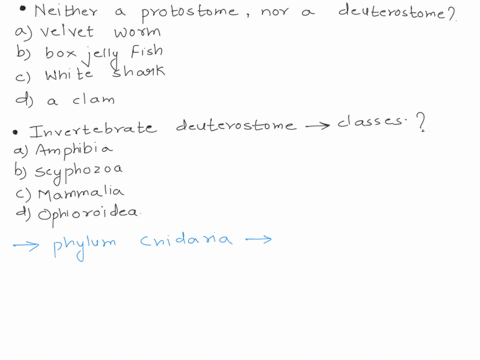 • Neither a protostome, nor a deuterostome?
a) velvet worm
b) box jelly fish
c) White shark
d) a clam
• Invertebrate deuterostome → classes. ?
a) Amphibia
b) Scyphozoa
c) Mammalia
d) Ophioroidea.
→ phylum cnidaria →